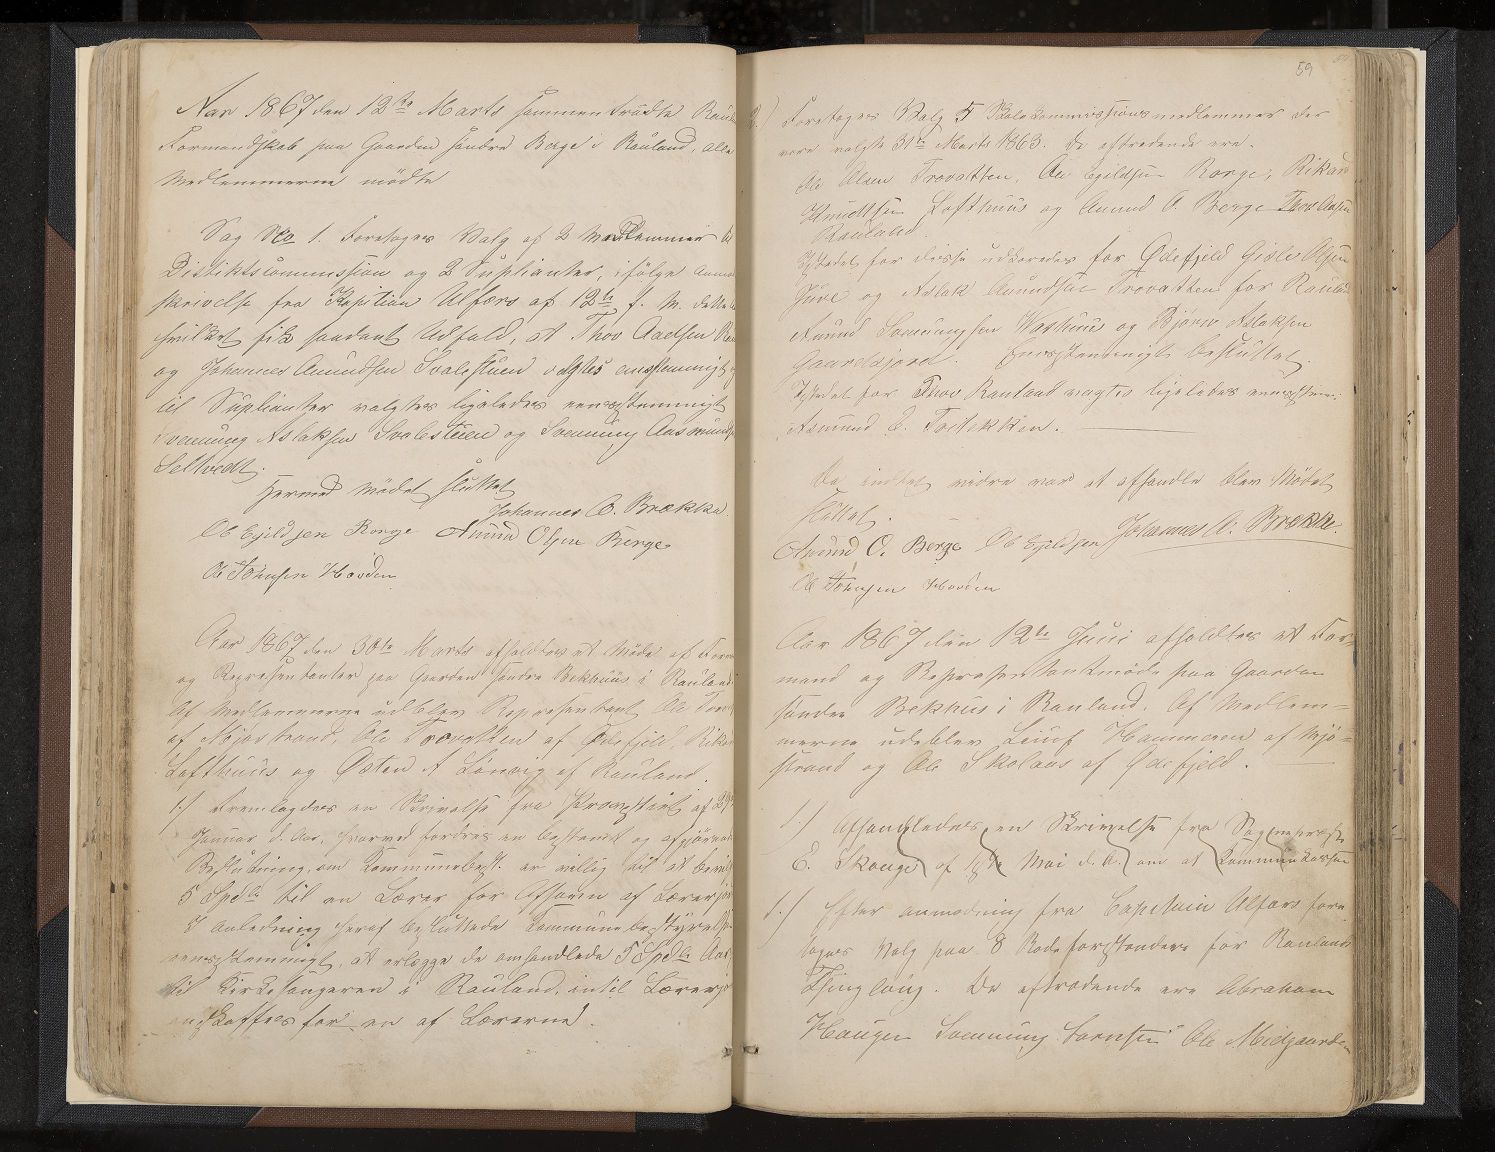 Aar 1867 den 12te Marts sammentraadte
Formandskab paa Gaarden søndre Berge i Rauland, alle
Medlemmerne mødte
Sag No 1. Foretoges Valg af 2 Medlemmer
Distiktscommission og 2 Suplianter, ifølge
skrivelse fra Kapitian Ulfers af 12te f. M. dette
hvilket fik saadant Udfald, at Thov Aadsen
og Johannes Amundsen Svalestuen valgtes enstemmigt
til Suplianter valgtes ligeledes eenstemmigt
Svenung Aslaksen Svalestuen og Svenung Aasmunds
Seltvedt.
Hermed Mødet sluttet
Johannes A. Brække
Ob Ejeldsen Rorge Amund Olsen Berge
Ob Johnsen Hovden
Aar 1867 den 30te Marts afholdtes et Møde af
og Repræsentanter paa Gaarden søndre Bekhuus i Rauland
Af Medlemmerne udeblev Repræsentant Ole
af Mjøsstrand, Ole Trovatten af Ødefjeld,
Lofthuus og Østen A Lønvig af Rauland.
1.) Fremlagdes en Skrivelse fra Provsten af
Januar d. Aar, hvorved fordres en bestemt og
Beslutning, om Kommunebest. er villig til at
5 Spdlr til en Lærer for
I Anledning heraf besluttede Kommunebestyrelse
eenstemmigt, at erlægge de omhandlede 5 Spdlr
til Kirkesangeren i Rauland, intil
anskaffes for en af Lærerne.
59
2.) Foretoges Valg 5 Skolekommissionsmedlemmer der
vare valgte 31te Marts 1863. De aftredende ere.
Ole Olsen Trovatten, Ole Ejeldsen Rorge, Rikard
Knudtsen Lofthuus og Amund O. Berge Thov Aasen
Rauland.
Istedet for disse udkaaredes for Ødefjeld Gisle Olsen
Juve og Aslak Amundsen Trovatten for Rauland
Amund Svenungsen Vashuus og Bjørn Aslaksen
Gaardsjord. Eenstemmigt besluttet.
Istedet for Thov Rauland valgtes ligeledes eenstem:
Asmund O. Toslekken.
Da intet vidre var at afhandle blev Mødet
sluttet.
Amund O. Berge Ob Ejeldsen Johannes A. Brække.
Ob Johnsen Hovden
Aar 1867 den 12te Juni afholdtes et For-
mand og Repræsentantmøde paa Gaarden
søndre Bekhus i Rauland. Af Medlem=
merne udeblev Leiuf Hammeren af Mjø=
strand og Ole Skolaas af Ødefjeld.
1.) Afhandledes en Skrivelse fra Sogneprest
E. Skouge af 18de Mai d. A. om at Kommunekassen
1.) Efter anmodning fra Capitain Ulfers fore-
toges Valg paa 8 Rodeforstandere for Raulands
Thinglaug. De aftrædende ere Abraham
Haugen Svenung Ole Midgaarden